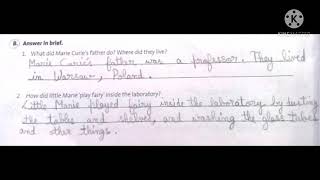 B. Answer in brief.
1. What did Marie Curie's father do? Where did they live?
Marie Curie's father was a professor. They lived
in Warsaw, Poland.
2. How did little Marie 'play fairy' inside the laboratory?
Little Marie played fairy inside the laboratory by dusting
the tables and shelves, and washing the glass tubes
and other things.
KINEMASTER